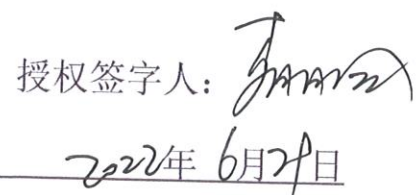 授权签字人：
2022年 6月29日